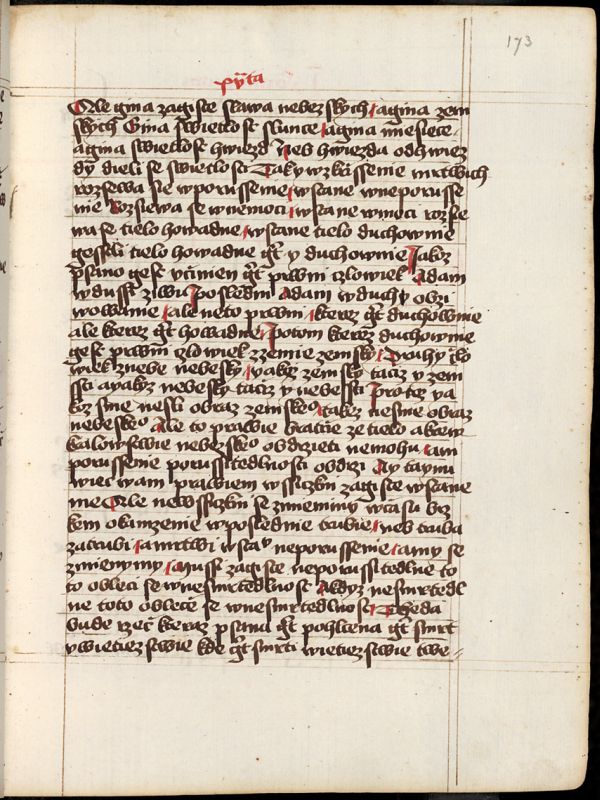 173
Ale gina zagiste slawa nebeskych / a gina zem
skych Gina swietlost slunce / a gina miesiece /
a gina swietlost hwiezd Neb hwiezda od hwiez
dy dieli se swietlosti Tak y wzkrissenie mrtwich
rozsewa sie w porussenie / wstane w neporusse
nie Rozsiewa se w nemoci / wstane w moci rozsie
wa se tielo howadne / wstane tielo duchownie
gestli tielo howadne gt y duchownie Jakoz
psano gest vcinien gt prwni czlowiek Adam
w dussi ziwu Posledni Adam w duch obzi
wowanie / ale ne to prwni / kterez gt duchownie
ale kterez gt howadne / potom kterez duchownie
gest prwni czlowiek z zemie zemsky / Druhy clo
wiek z nebe nebesky / yakoz zemsky taciz y zem
ssti a yakoz nebesky taciz y nebessti Protoz ya
koz sme nesli obraz zemskeo / takez nesme obraz
nebeskeo Ale to prawie bratrie ze tielo a krew
kralowstwie nebeskeo obdrzeti nemohu / ani
porussenie porussitedlnosti obdrzi Ay taynu
wiec wam prawiem wssiczkni zagiste wstane
me Ale ne wssiczkni se zmienimy w casu brz
kem okamzenie w poslednie trubie / neb truba
zatrubi / a mrtwi wstanu neporussenie / a my se
zmienymy / Mussi zagiste neporussitedlne to
to obleci se w nesmrtedlnost A kdyz nesmrtedl
ne toto oblece se w nesmrtedlnost / Tehda
bude rzec kteraz psana gt pohlcena gt smrt
w wietiezstwie kde gt smrti wietiezstwie twe